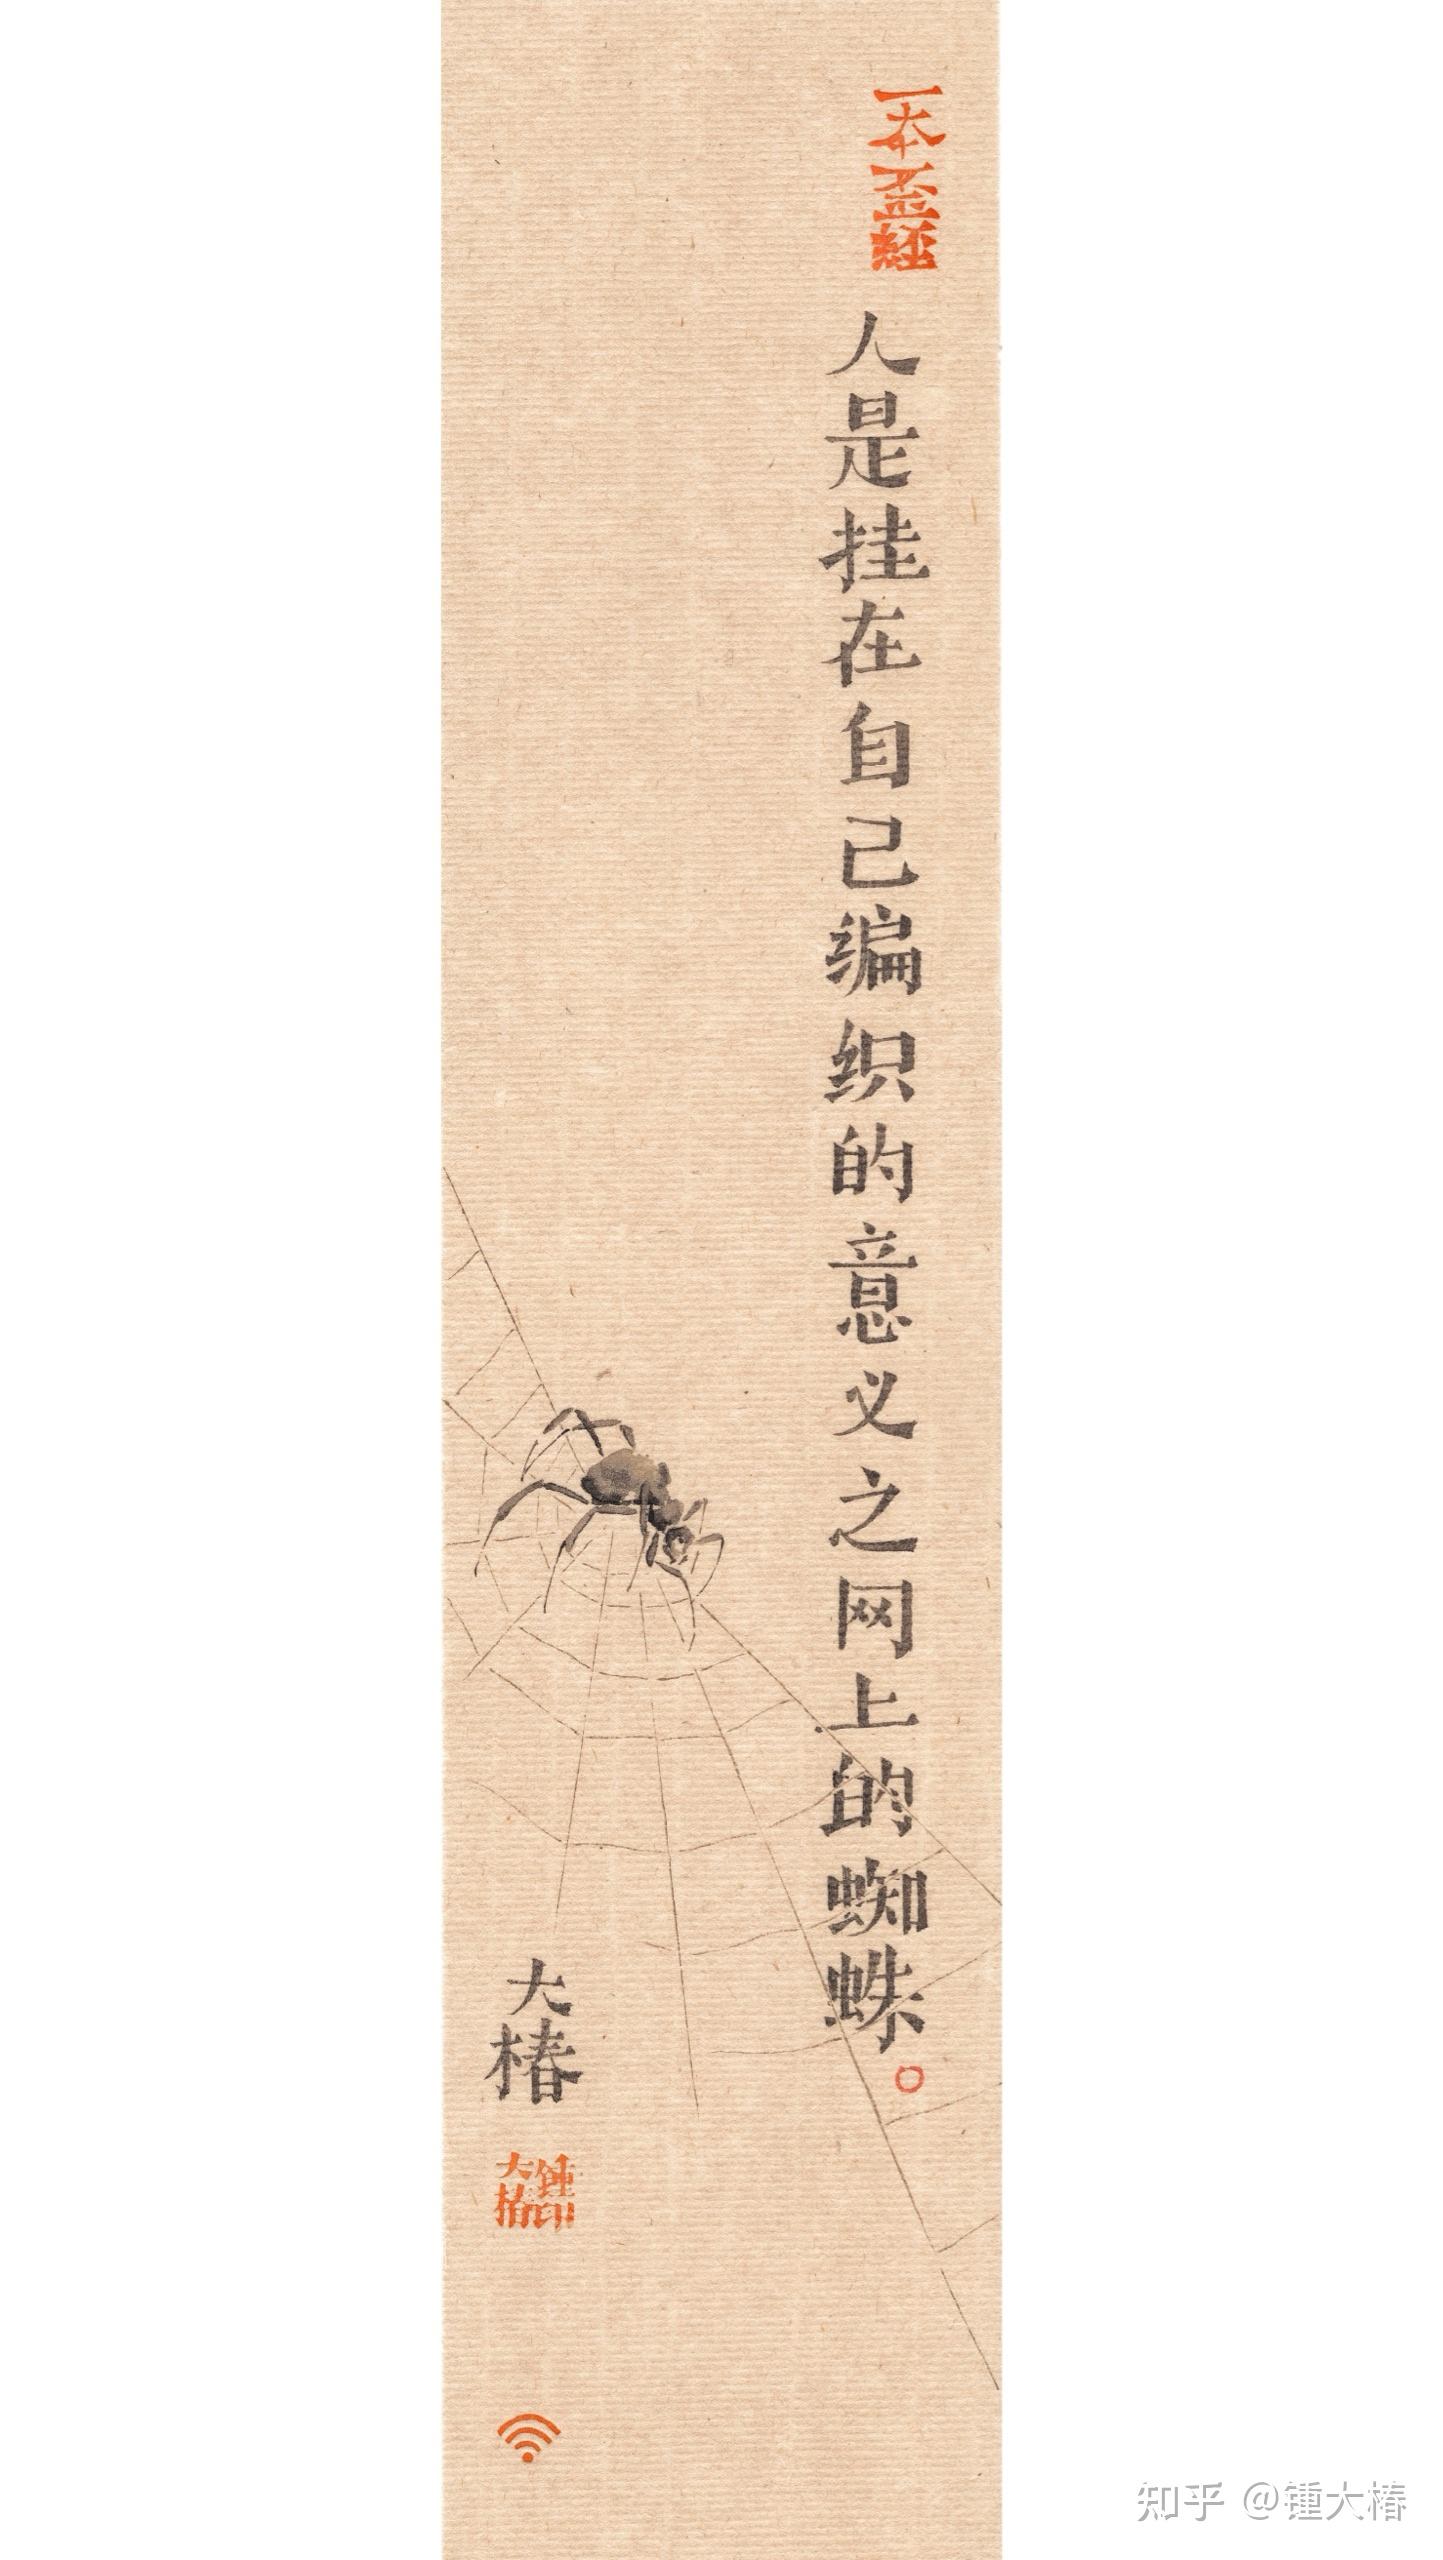 一本歪經
人是挂在自己编织的意义之网上的蜘蛛。
大椿
锺大椿印
知乎 @锺大椿